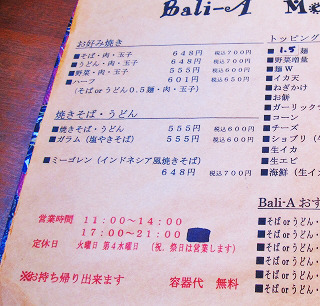 Bali-A
お好み焼き
■そば・肉・玉子 648円 税込700円
■うどん・肉・玉子 648円 税込700円
■野菜・肉・玉子 555円 税込600円
■ハーフ 601円 税込650円
(そばorうどん0.5麺・肉・玉子)
焼きそば・うどん
■焼きそば・うどん 555円 税込600円
■ガラム(塩やきそば) 555円 税込600円
■ミーゴレン(インドネシア風焼きそば)
648円 税込700円
営業時間 11:00～14:00
17:00～21:00
定休日 火曜日 第4水曜日 (祝、祭日は営業します)
※お持ち帰り出来ます 容器代 無料
トッピング
■1.5麺
■野菜増量
■麺W
■イカ天
■ねぎかけ
■お餅
■ガーリック
■コーン
■チーズ
■生イカ
■生エビ
■海鮮(生イ
Bali-A おす
■そばorうどん・
■そばorうどん・
■そばorうどん・
■そばorうどん・
■そばorうどん・